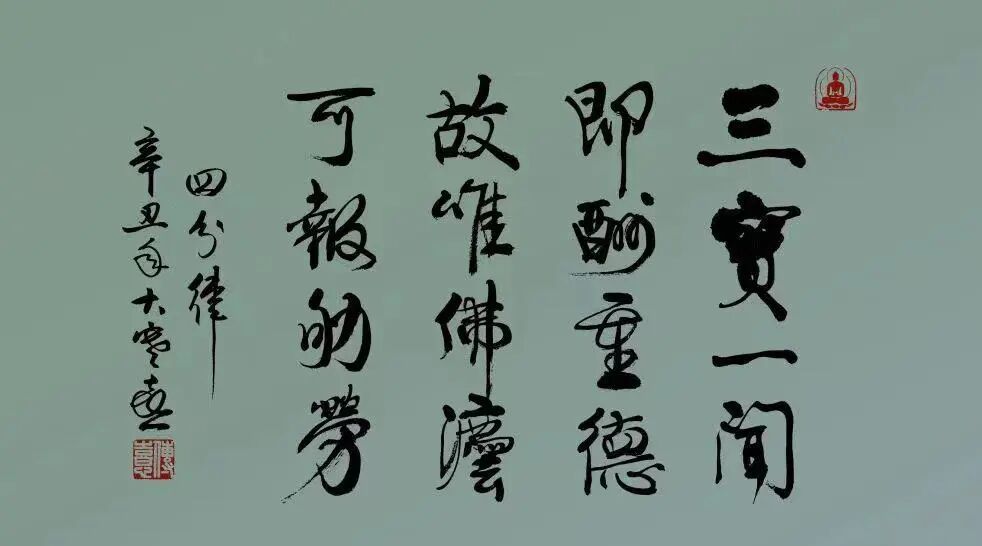 三寶一聞
即酬重德
故唯佛灋
可報劬勞
四分律
辛丑年大寒喜
傳喜